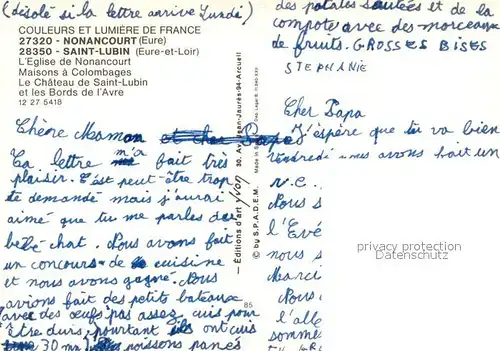 (désolé si la lettre arrive Lundi)
COULEURS ET LUMIÈRE DE FRANCE
27320 - NONANCOURT (Eure)
28350 - SAINT-LUBIN (Eure-et-Loir)
L'Eglise de Nonancourt
Maisons à Colombages
Le Château de Saint-Lubin
et les Bords de l'Avre
12 27 5418
Chère Maman et cher Papa
Ta lettre m'a fait très
plaisir. C'est peut-être trop
te demandé mais j'aurai
aimé que tu me parles du
bébé chat. Nous avons fait
un concours de cuisine
et nous avons gagné. Nous
avions fait des petits bateaux
avec des œufs pas assez cuis pour
être durs, pourtant ils ont cuis
30 mn poissons panés
Editions d'art yvon, 30, Av. Jean-Jaurès-94-Arcueil
© by S.P.A.D.E.M.
Made in
85
patates sautées et de la
compote avec des morceaux
de fruits. GROSSES BISES
STEPHANIE
Cher Papa
J'espère que tu va bien
vendredi nous avons fait un
Nous
l'Evé
Nous
Marci
Nous
l'alle
somme
privacy protection
Datenschutz